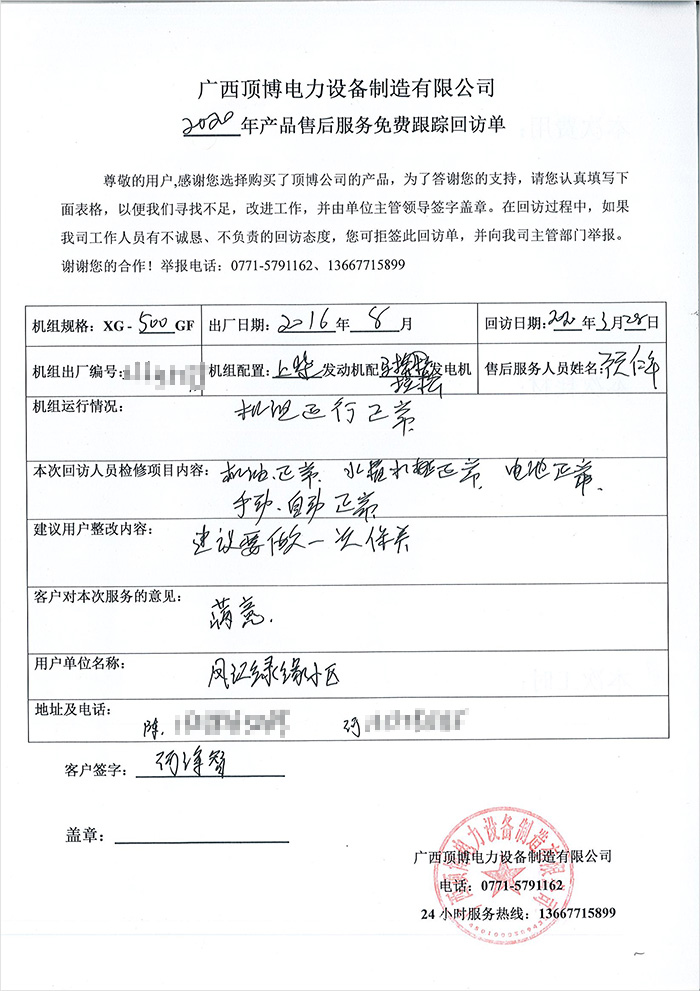 广西顶博电力设备制造有限公司
2020年产品售后服务免费跟踪回访单
尊敬的用户,感谢您选择购买了顶博公司的产品，为了答谢您的支持，请您认真填写下
面表格，以便我们寻找不足，改进工作，并由单位主管领导签字盖章。在回访过程中，如果
我司工作人员有不诚恳、不负责的回访态度，您可拒签此回访单，并向我司主管部门举报。
谢谢您的合作！举报电话：0771-5791162、13667715899
机组规格：XG - 500 GF 出厂日期：2016年8月 回访日期：2020年3月28日
机组出厂编号： 机组配置：上柴发动机配 发电机 售后服务人员姓名：
机组运行情况： 机组运行正常
本次回访人员检修项目内容： 机油、正常、 正常、电池正常、
手动、自动正常
建议用户整改内容： 建议要做一次保养
客户对本次服务的意见： 满意.
用户单位名称： 凤江绿缘小区
地址及电话：
陈. 何
客户签字：
盖章：
广西顶博电力设备制造有限公司
电话：0771-5791162
24 小时服务热线：13667715899